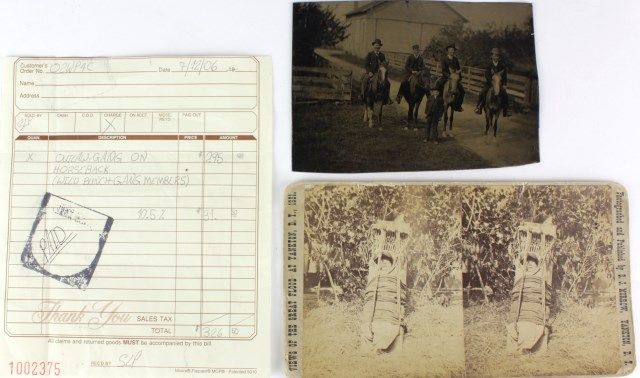 Customer's
Order No. OOWPAC Date 7/12/06 19
Name
Address
SOLD BY CASH C.O.D. CHARGE ON ACCT. MDSE. RETD. PAID OUT
X
QUAN. DESCRIPTION PRICE AMOUNT
X OUTLAW GANG ON $295 00
HORSEBACK
(WILD BUNCH GANG MEMBERS)
10.5% $31.
PAID
Thank You
SALES TAX
TOTAL $326. 50
All claims and returned goods MUST be accompanied by this bill.
1002375
REC'D BY
VIEWS OF THE GREAT FLOOD AT YANKTON, D. T., 1881.
Photographed and Published by S. J. MORROW, YANKTON, D. T.